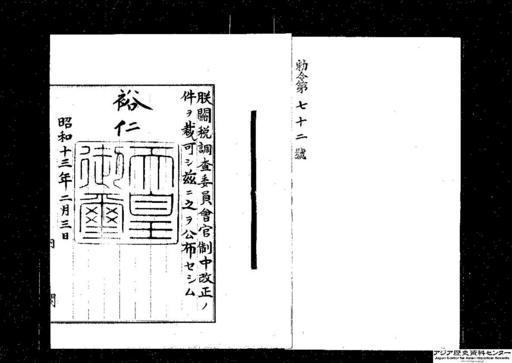 勅令第七十二號
朕關税調査委員會官制中改正ノ
件ヲ裁可シ茲ニ之ヲ公布セシム
裕仁
天皇
御璽
昭和十三年二月三日
内閣
アジア歴史資料センター
Japan Center for Asian Historical Records